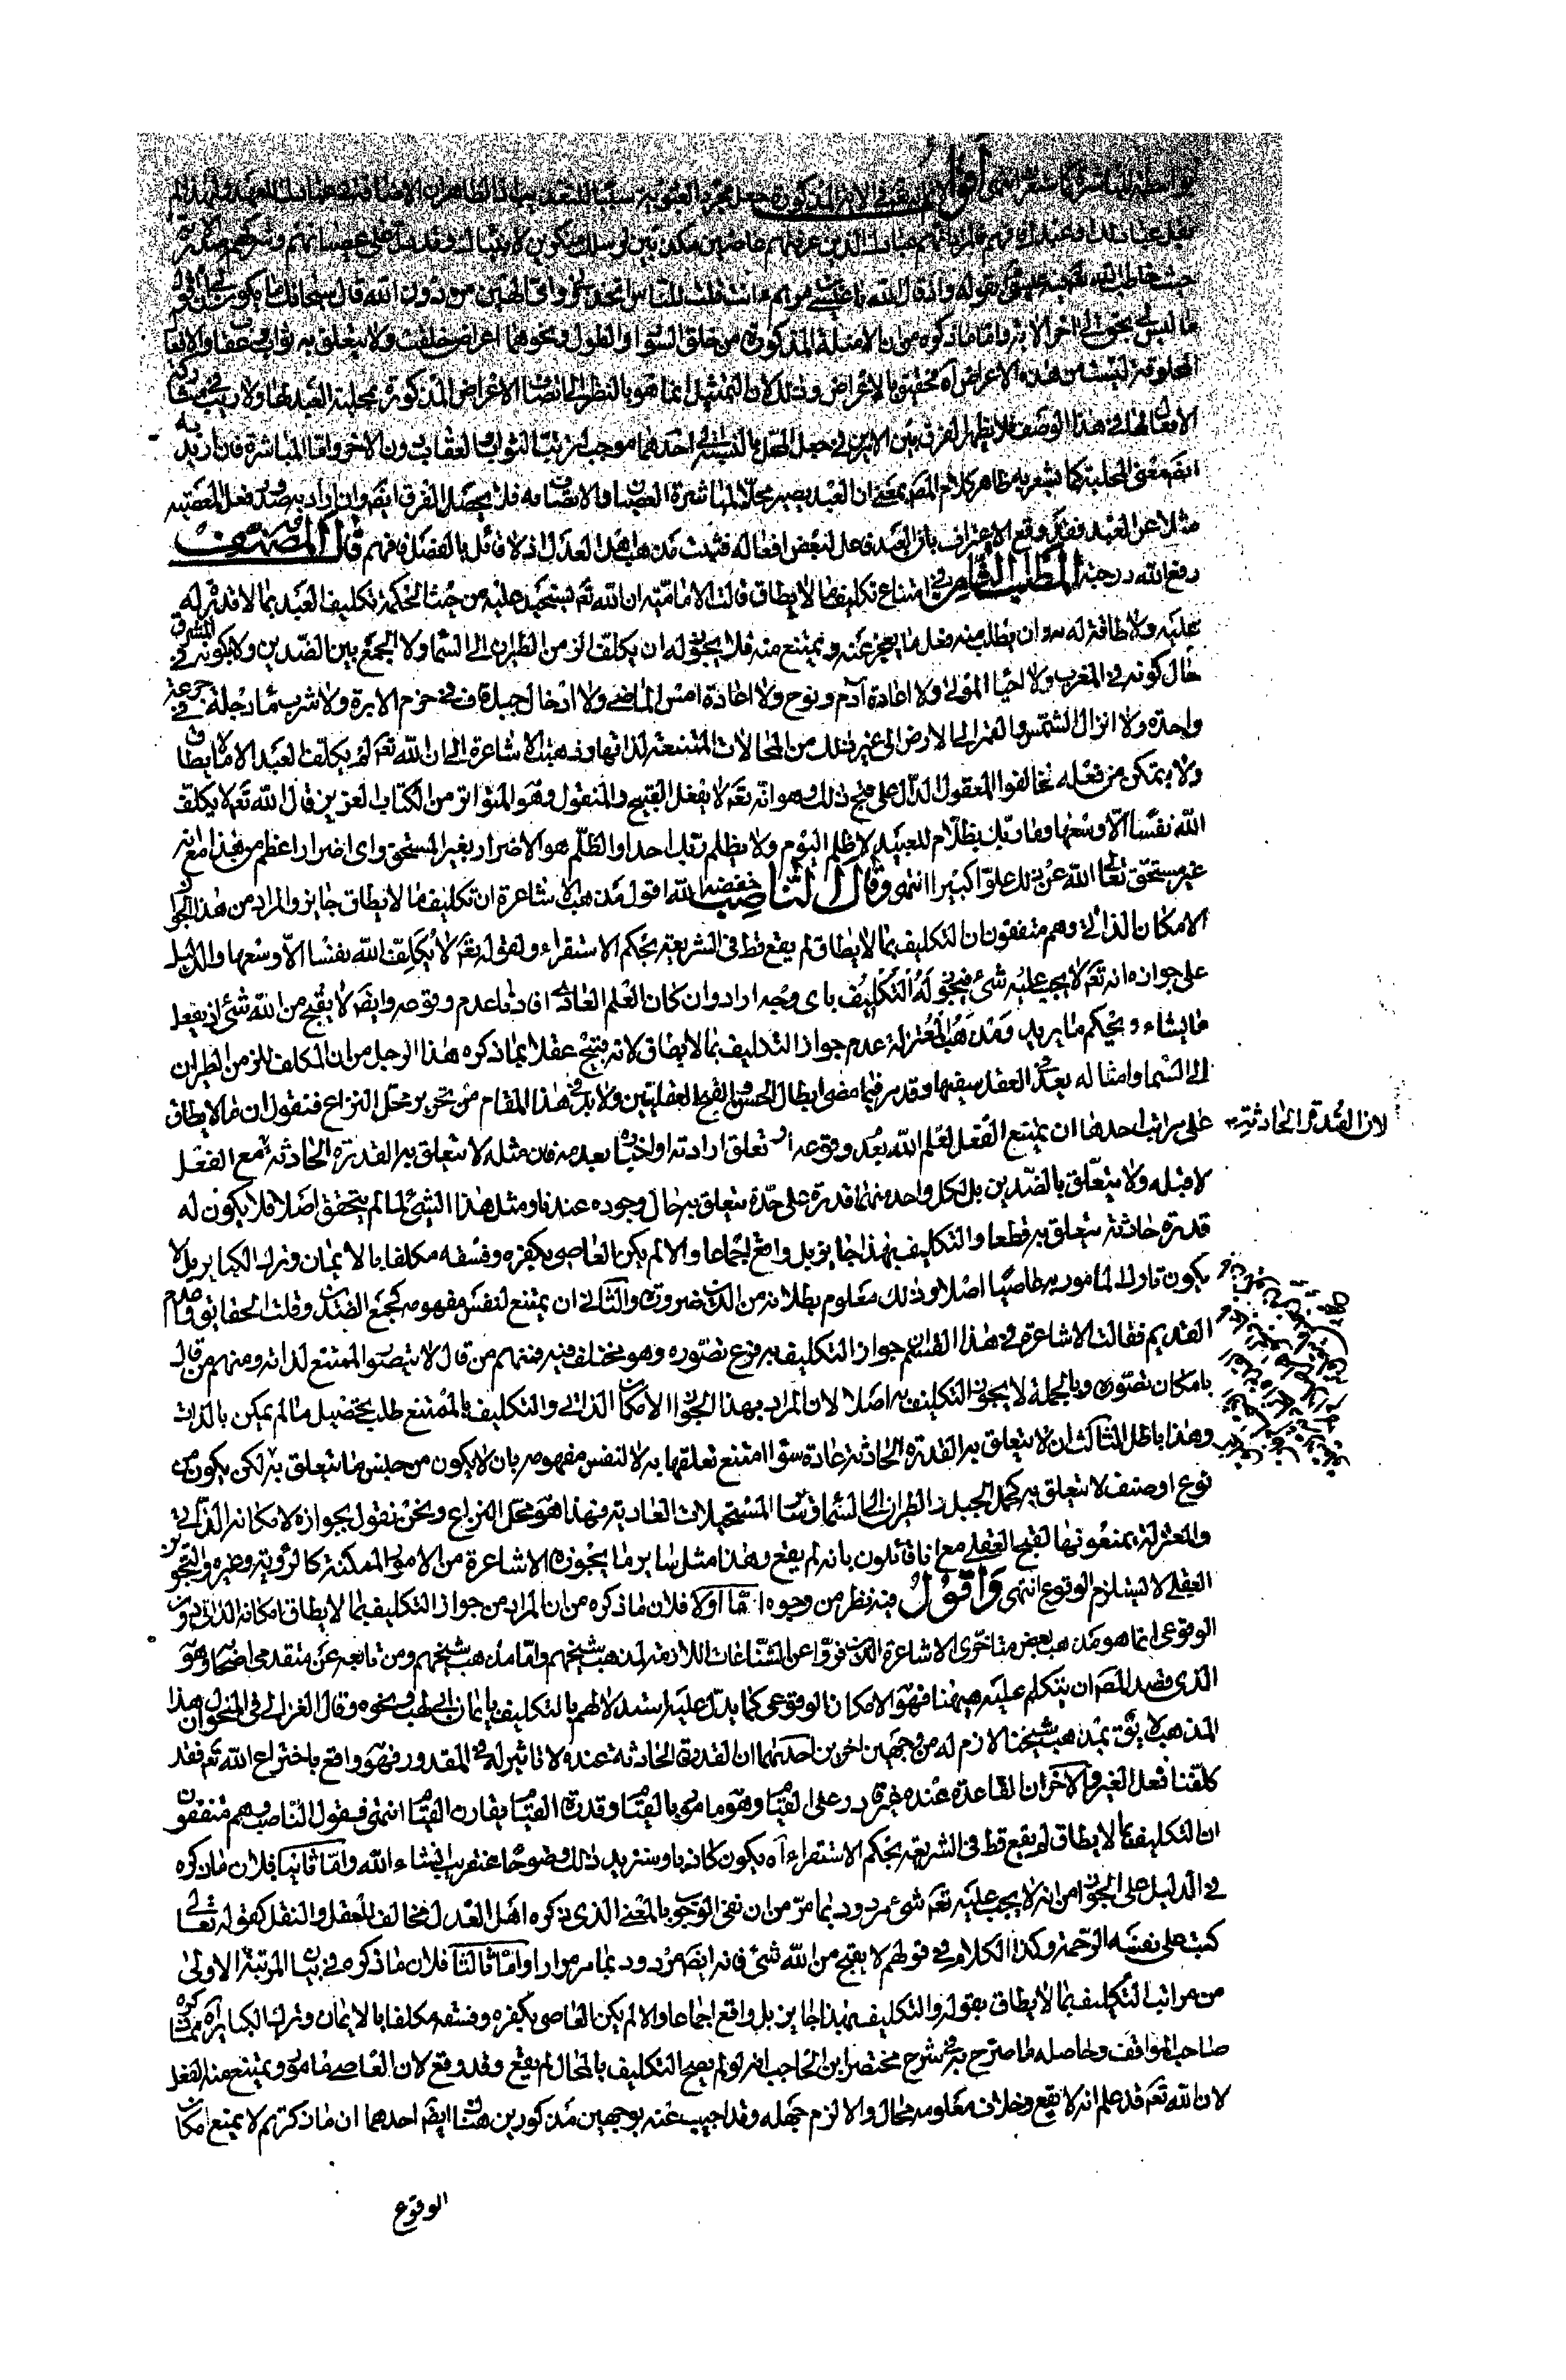 بواسطة المباشرة كما شعر انتهى اقول الآية المذكورة جعل مجرد العبودية سببا للتعذيب
حيث خاطب الله نبيه عيسى بقوله واذ قال الله يا عيسى بن مريم ءانت قلت للناس اتخذوني وامي الهين من دون الله قال سبحانك ما يكون لي ان اقول
ما ليس لي بحق الى اخر الاية واما ما ذكره من ان الامثلة المذكورة من خلق السواد والطول ونحوهما اعراض خلقت ولا يتعلق به ثواب ولا عقاب والافعال
المخلوقة ليست من هذه الاعراض اه وذلك لان التمثيل انما هو بالنظر الى الاعراض المذكورة محلية العبد لها ولا ريب في مشاركة
الافعال لها في هذا الوصف فلا يظهر الفرق بين الامرين في جعل المحل بالنسبة الى احدهما موجب لترتب الثواب والعقاب دون الاخر واما المباشرة فان اريد به
ايضا معنى المحلية كما يشعر به ظاهر كلام المص بمعنى ان العبد يصير محلا لمباشرة فلا يحصل الفرق ايضا وان اراد به صدور فعل المعصية
مثلا عن العبد فقد وقع الاعتراف بان العبد فاعل لبعض افعاله فثبت مذهب اهل العدل اذ لا قائل بالفصل فافهم قال المصنف
رفع الله درجته المطلب الثامن في امتناع تكليف ما لا يطاق قالت الامامية ان الله تع يستحيل عليه من حيث الحكمة تكليف العبد بما لا قدرة له
عليه ولا طاقة له به وان يطلب منه فعل ما يعجز عنه ويمتنع منه فلا يجوز له ان يكلف الزمن الطيران الى السماء ولا الجمع بين الضدين ولا بكونه في المشرق
حال كونه في المغرب ولا احياء الموتى ولا اعادة آدم ونوح ولا اعادة امس الماضي ولا ادخال جبل قاف في خرم الابرة ولا شرب ماء دجلة في جرعة
واحدة ولا انزال الشمس والقمر الى الارض الى غير ذلك من المحالات الممتنعة لذاتها وذهبت الاشاعرة الى ان الله تع لم يكلف العبد الا ما لا يطاق
ولا يتمكن من فعله فخالفوا المعقول الدال على قبح ذلك وهو انه تع لا يفعل القبيح والمنقول وهو المتواتر من الكتاب العزيز قال الله تع لا يكلف
الله نفسا الا وسعها وما ربك بظلام للعبيد لا ظلم اليوم ولا يظلم ربك احدا والظلم هو الاضرار بغير المستحق واى اضرار اعظم من هذا مع انه
غير مستحق تعالى الله عن ذلك علوا كبيرا انتهى وقال الناصب خفضه الله اقول مذهب الاشاعرة ان تكليف ما لا يطاق جايز والمراد من هذا الجواز
الامكان الذاتي وهم متفقون ان التكليف بما لا يطاق لم يقع قط في الشريعة بحكم الاستقراء ولقوله تع لا يكلف الله نفسا الا وسعها والدليل
على جوازه انه تع لا يجب عليه شئ فيجوز له التكليف باى وجه اراد وان كان العلم العادى افادنا عدم وقوعه وايضا لا يقبح من الله شئ اذ يفعل
ما يشاء ويحكم ما يريد ومذهب المعتزلة عدم جواز التكليف بما لا يطاق لانه قبيح عقلا بما ذكره هذا الرجل من ان المكلف للزمن الطيران
الى السماء وامثاله يعده العقل سفيها وقد مر فيما مضى ابطال الحسن والقبح العقليين ولا بد في هذا المقام من تحرير محل النزاع فنقول ان ما لا يطاق
على مراتب احدها ان يمتنع الفعل لعلم الله بعدم وقوعه او تعلق ارادته او اخباره بعدمه فان مثله لا يتعلق به القدرة الحادثة مع الفعل
لان القدرة الحادثة
لا قبله ولا يتعلق بالضدين بل لكل واحد منهما قدرة على حدة يتعلق به حال وجوده عندنا ومثل هذا الشئ لما لم يتحقق اصلا فلا يكون له
قدرة حادثة يتعلق به قطعا والتكليف بهذا جايز بل واقع اجماعا والا لم يكن العاصي بكفره وفسقه مكلفا بالايمان وترك الكباير بل لا
يكون تارك المامور به عاصيا اصلا وذلك معلوم بطلانه من الدين ضرورة والثاني ان يمتنع لنفس مفهومه كجمع الضدين وقلب الحقايق واعدام
القديم فقالت الاشاعرة في هذا القسم ان جواز التكليف به فرع تصوره وهو مختلف فيه فمنهم من قال لا يتصور الممتنع لذاته ومنهم من قال
بامكان تصوره وبالجملة لا يجوز التكليف به اصلا لان المراد بهذا الجواز الامكان الذاتي والتكليف بالممتنع طلب تحصيل ما لم يمكن بالذات
وهذا باطل الثالث ان لا يتعلق به القدرة الحادثة عادة سواء امتنع تعلقها به لا لنفس مفهومه بان لا يكون من جنس ما يتعلق به لكن يكون من
نوع او صنف لا يتعلق به كحمل الجبل والطيران الى السماء وساير المستحيلات العادية فهذا هو محل النزاع ونحن نقول بجوازه لامكانه الذاتي
والمعتزلة يمنعونها لقبح العقلي مع انا قائلون بانه لم يقع وهذا مثل ساير ما يجوزه الاشاعرة من الامور الممكنة كالرؤية وغيره والتجويز
العقلي لا يستلزم الوقوع انتهى واقول فيه نظر من وجوه اما اولا فلان ما ذكره من ان المراد من جواز التكليف بما لا يطاق امكانه الذاتي دون
الوقوعي انما هو مذهب بعض متاخرى الاشاعرة الذين فروا عن الشناعات اللازمة لمذهب شيخهم واما مذهب شيخهم ومن تابعه عن متقدمى اصحابه وهو
الذى قصد المص ان يتكلم عليه هيهنا فهو الامكان الوقوعي كما يدل عليه استدلالهم بالتكليف بايمان ابي لهب ونحوه وقال الغزالي في المنخول ان هذا
المذهب لايق بمذهب شيخنا لازم له من وجهين اخرين احدهما ان القدرة الحادثة عنده لا تاثير له في المقدور فهو واقع باختراع الله تع فقد
كلفنا فعل الغير والاخر ان القاعدة عنده غير قادر على القيام وهو مامور بالقيام وقدرة القيام يقارن القيام انتهى فقول الناصب وهم متفقون
ان التكليف بما لا يطاق لم يقع قط في الشريعة بحكم الاستقراء آه يكون كاذبا وسنزيد ذلك وضوحا عنقريب انشاء الله واما ثانيا فلان ما ذكره
في الدليل على الجواز من انه لا يجب عليه تع شئ مردود بما مر من ان نفي الوجوب بالمعنى الذى ذكره اهل العدل مخالف للعقل والنقل كقوله تعالى
كتب على نفسه الرحمة وكذا الكلام في قولهم لا يقبح من الله شئ فانه ايضا مردود بما مر مرارا واما ثالثا فلان ما ذكره في بيان المرتبة الاولى
من مراتب التكليف بما لا يطاق بقوله والتكليف بهذا جايز بل واقع اجماعا والا لم يكن العاصي بكفره وفسقه مكلفا بالايمان وترك الكباير آه مما ذكره
صاحب المواقف وحاصله ما صرح به في شرح مختصر ابن الحاجب انه لو لم يصح التكليف بالمحال لم يقع وقد وقع لان العاصي مامور ويمتنع عنه الفعل
لان الله تع قد علم انه لا يقع وخلاف معلومه محال والا لزم جهله وقد اجيب عنه بوجهين مذكورين هناك ايضا احدهما ان ما ذكرتم لا يمنع امكان
الوقوع